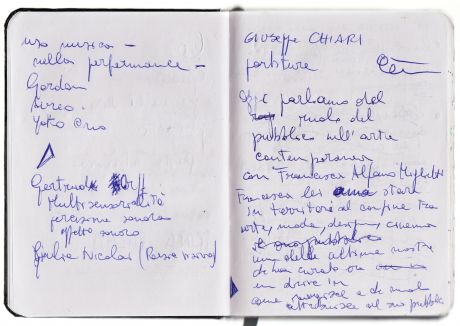 uso musica –
nella performance –
Gordon
Yoko Ono
Gertrud
Multisensorialità
percezione sonora
effetto sonoro
Giulia Nicolai
GIUSEPPE CHIARI
partiture
oggi parliamo del
ruolo del
pubblico nell'arte
contemporanea
con Francesca Alfano Miglietti
Francesca lei ama stare
in territori al confine tra
arte, moda, design, cinema
il suo pubblico
una delle ultime mostre
da lei curato
un drive in
come e di
al suo pubblico